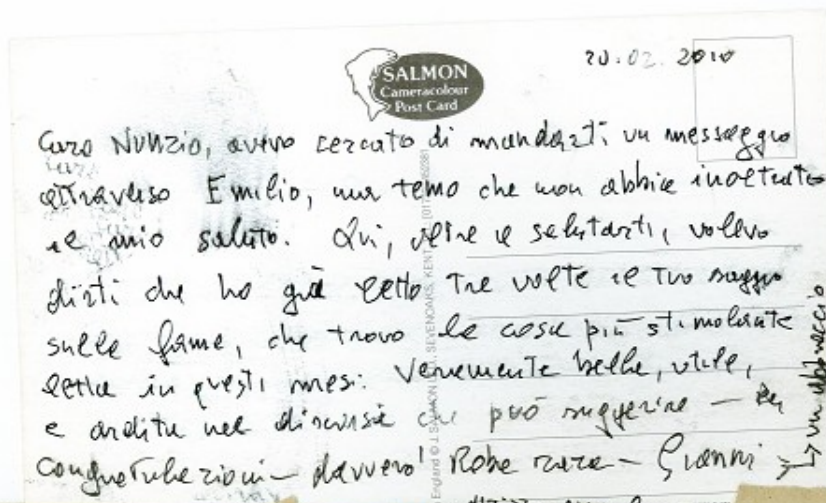 SALMON
Cameracolour
Post Card
20.02.2010
Caro Nunzio, avevo cercato di mandarti un messaggio
attraverso Emilio, ma temo che non abbia inoltrato
il mio saluto. Qui, oltre a salutarti, volevo
dirti che ho già letto tre volte il tuo saggio
sulla fame, che trovo la cosa più stimolante
letta in questi mesi. Veramente bella, utile,
e ardita nel discorso che può suggerire —
congratulazioni — davvero! Roba rara — Gianni
→ un abbraccio
England © J. SALMON LTD., SEVENOAKS, KENT